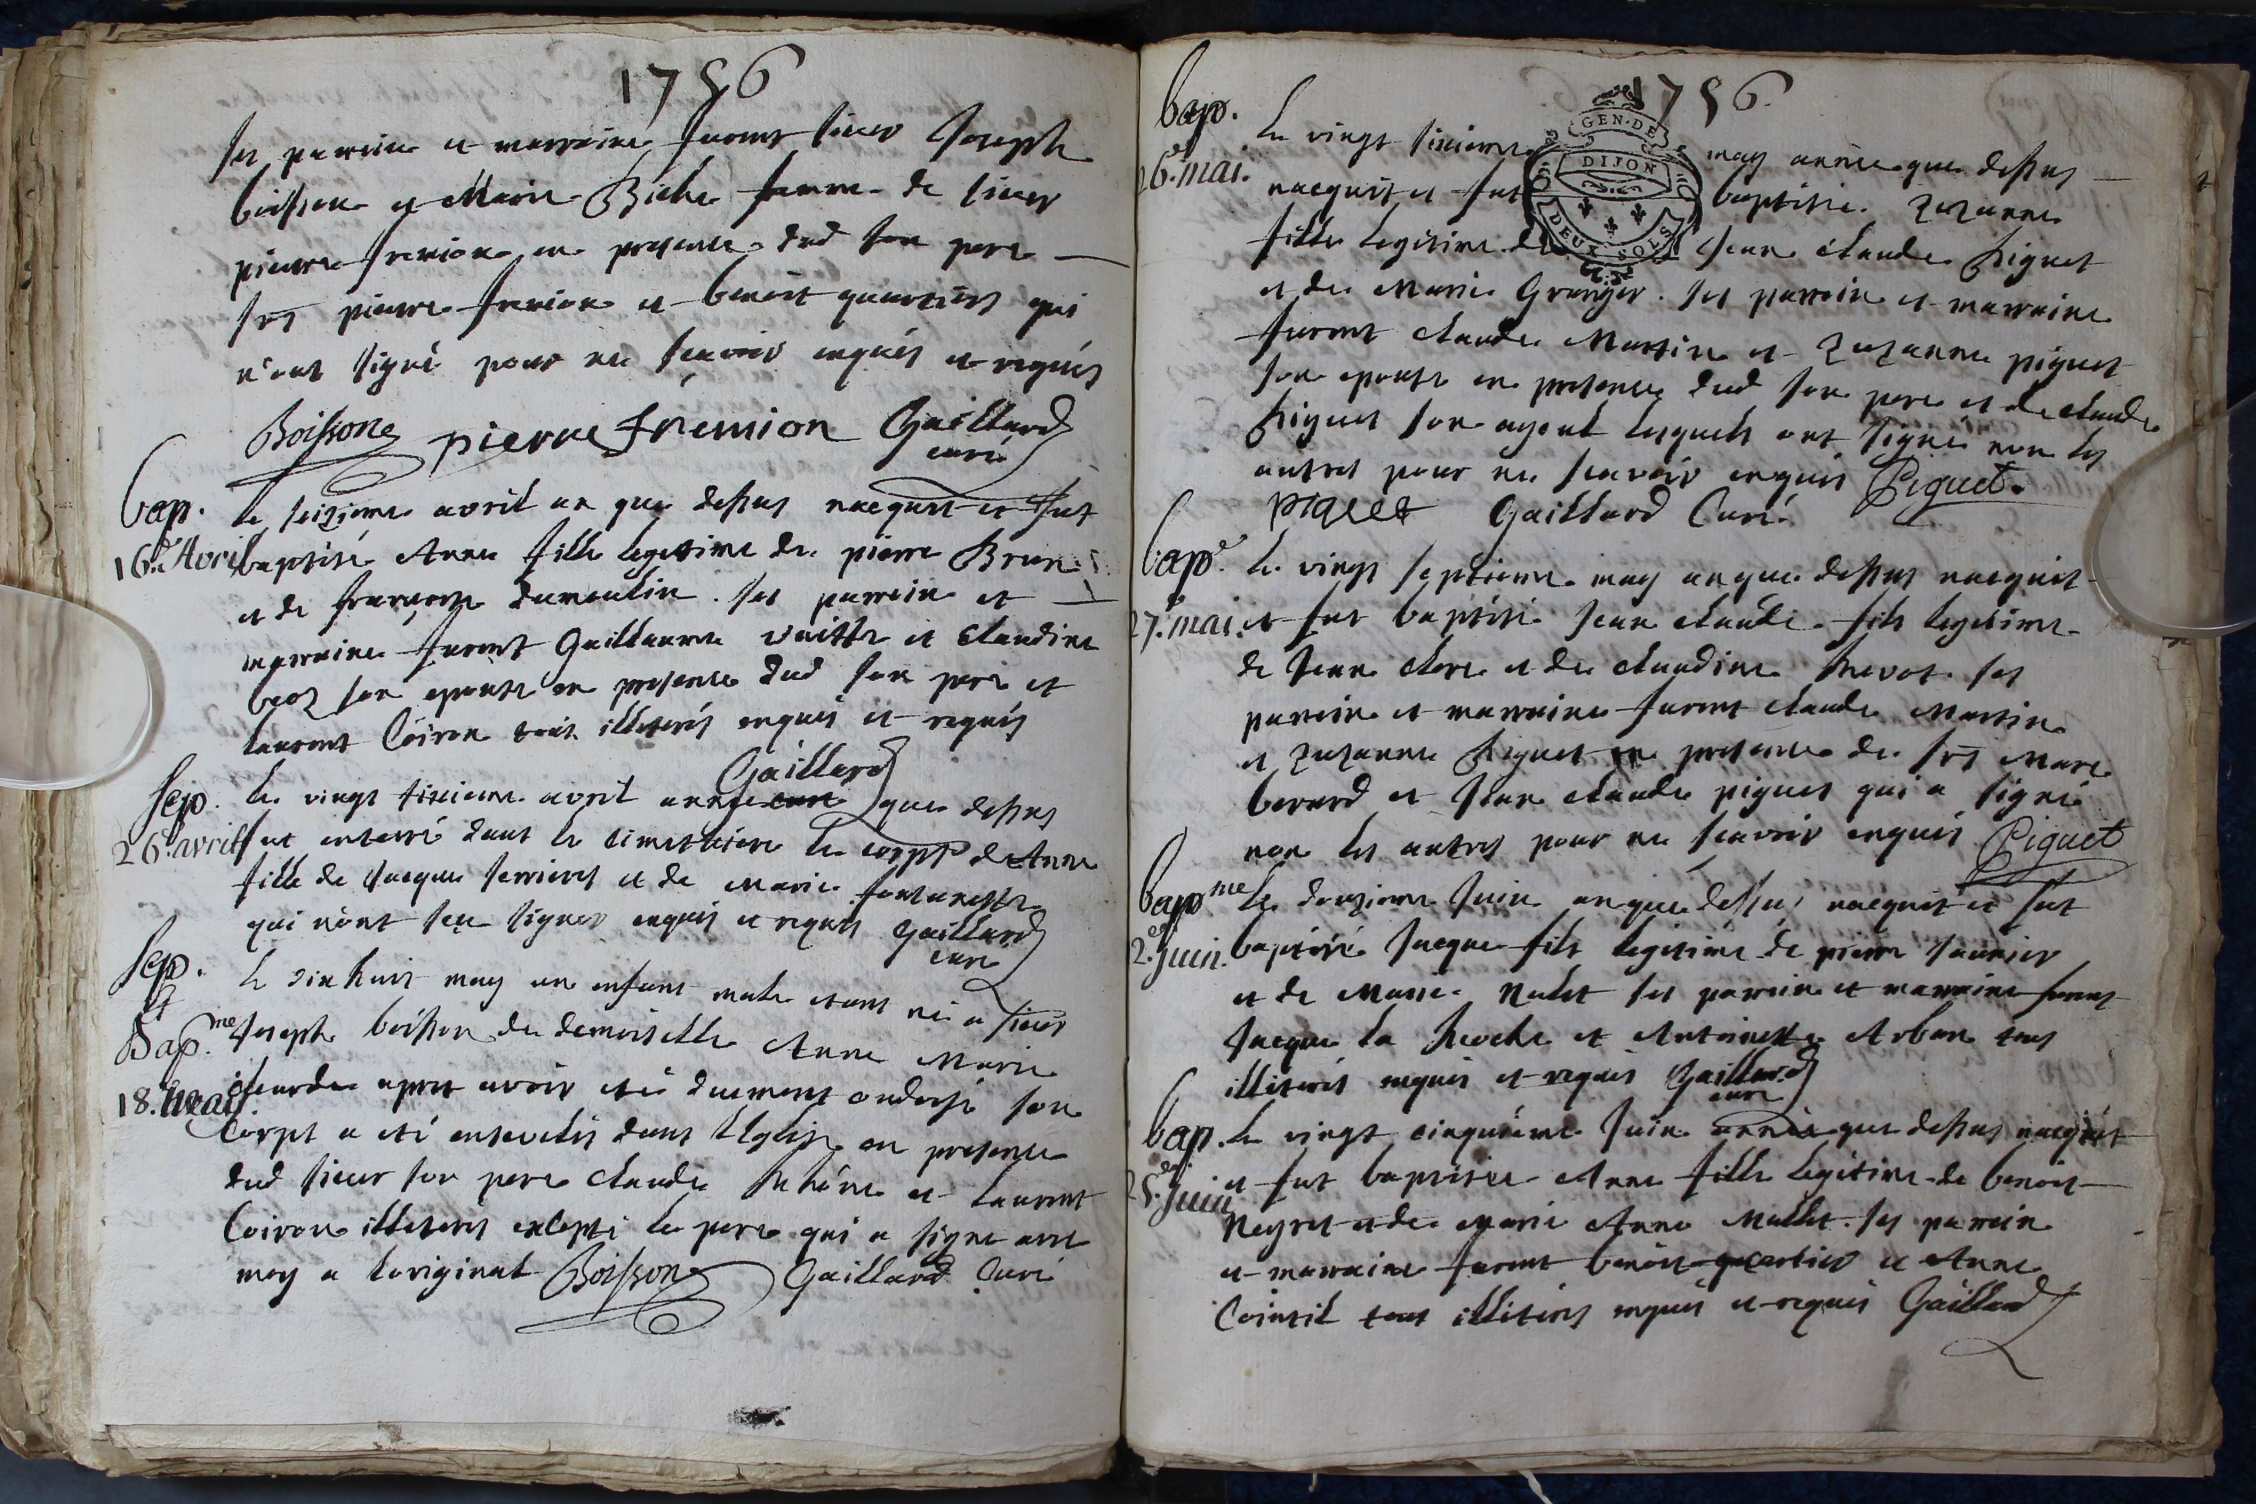 1756
ses parrein et marraine furent sieur Joseph
boisson et Marie Biche femme de sieur
pierre fremion en presence dud son pere
srs pierre fremion et benoit quartier qui
n'ont signé pour ne scavoir enquis et requis
Boisson pierre fremion Gaillard
curé
bap.
16.e Avril
le seizieme avril an que dessus nacquit et fut
baptisé Anne fille legitime de pierre Brun
et de francoise dumoulin. ses parrein et
marraine furent Guillaume et Claudine
son epouse en presence dud son pere et
laurent Coiron tous illiterés enquis et requis
Gaillard
curé
sep.
26.e avril
le vingt sixieme avril année que dessus
fut enterré dans le cimettiere le corps de Anne
fille de Jacque ferrieres et de Marie
qui n'ont sceu signer enquis et requis Gaillard
curé
sep.
et
Bap.me
18. may
le dix huit may un enfant male etant né a sieur
Joseph boisson de demoiselle Anne Marie
apres avoir eté duement ondoyé son
corps a eté ensevelis dans l'Eglise en presence
dud sieur son pere Claude et laurent
Coiron illiterés excepté le pere qui a signe avec
moy a l'original Boisson Gaillard Curé
1756.
GEN·DE
DIJON
DEUX SOLS
bap.
26.e mai.
le vingt sixieme may année que dessus
nacquit et fut baptisée Zuzanne
fille legitime de Jean Claude Piguet
et de Marie Granger. ses parrein et marraine
furent Claude Martin et Zuzanne piguet
son epouse en presence dud son pere et de claude
Piguet son ayeul lesquels ont signé non les
autres pour ne scavoir enquis Piguet.
piguet Gaillard Curé
bap.e
27.e mai.
le vingt septieme may an que dessus nacquit
et fut baptisé Jean claude fils legitime
de Jean et de claudine Prevot ses
parrein et marraine furent claude Martin
et Zuzanne Piguet en presence de srs Marc
berard et Jean claude piguet qui a signé
non les autres pour ne scavoir enquis Piguet
bap.me
2.e Juin.
le douzieme Juin an que dessus nacquit et fut
baptisé Jacque fils legitime de pierre
et de Marie Mulet ses parrein et marraine furent
Jacque la Roche et Antoinette Arban tous
illiterés enquis et requis Gaillard
curé
bap.
25.e Juin
le vingt cinquiéme Juin année que dessus nacquit
et fut baptisée Anne fille legitime de benoit
Neyret et de Marie Anne Mullet. ses parrein
et marraine furent benoit quartier et Anne
Cointil tous illiterés enquis et requis Gaillard